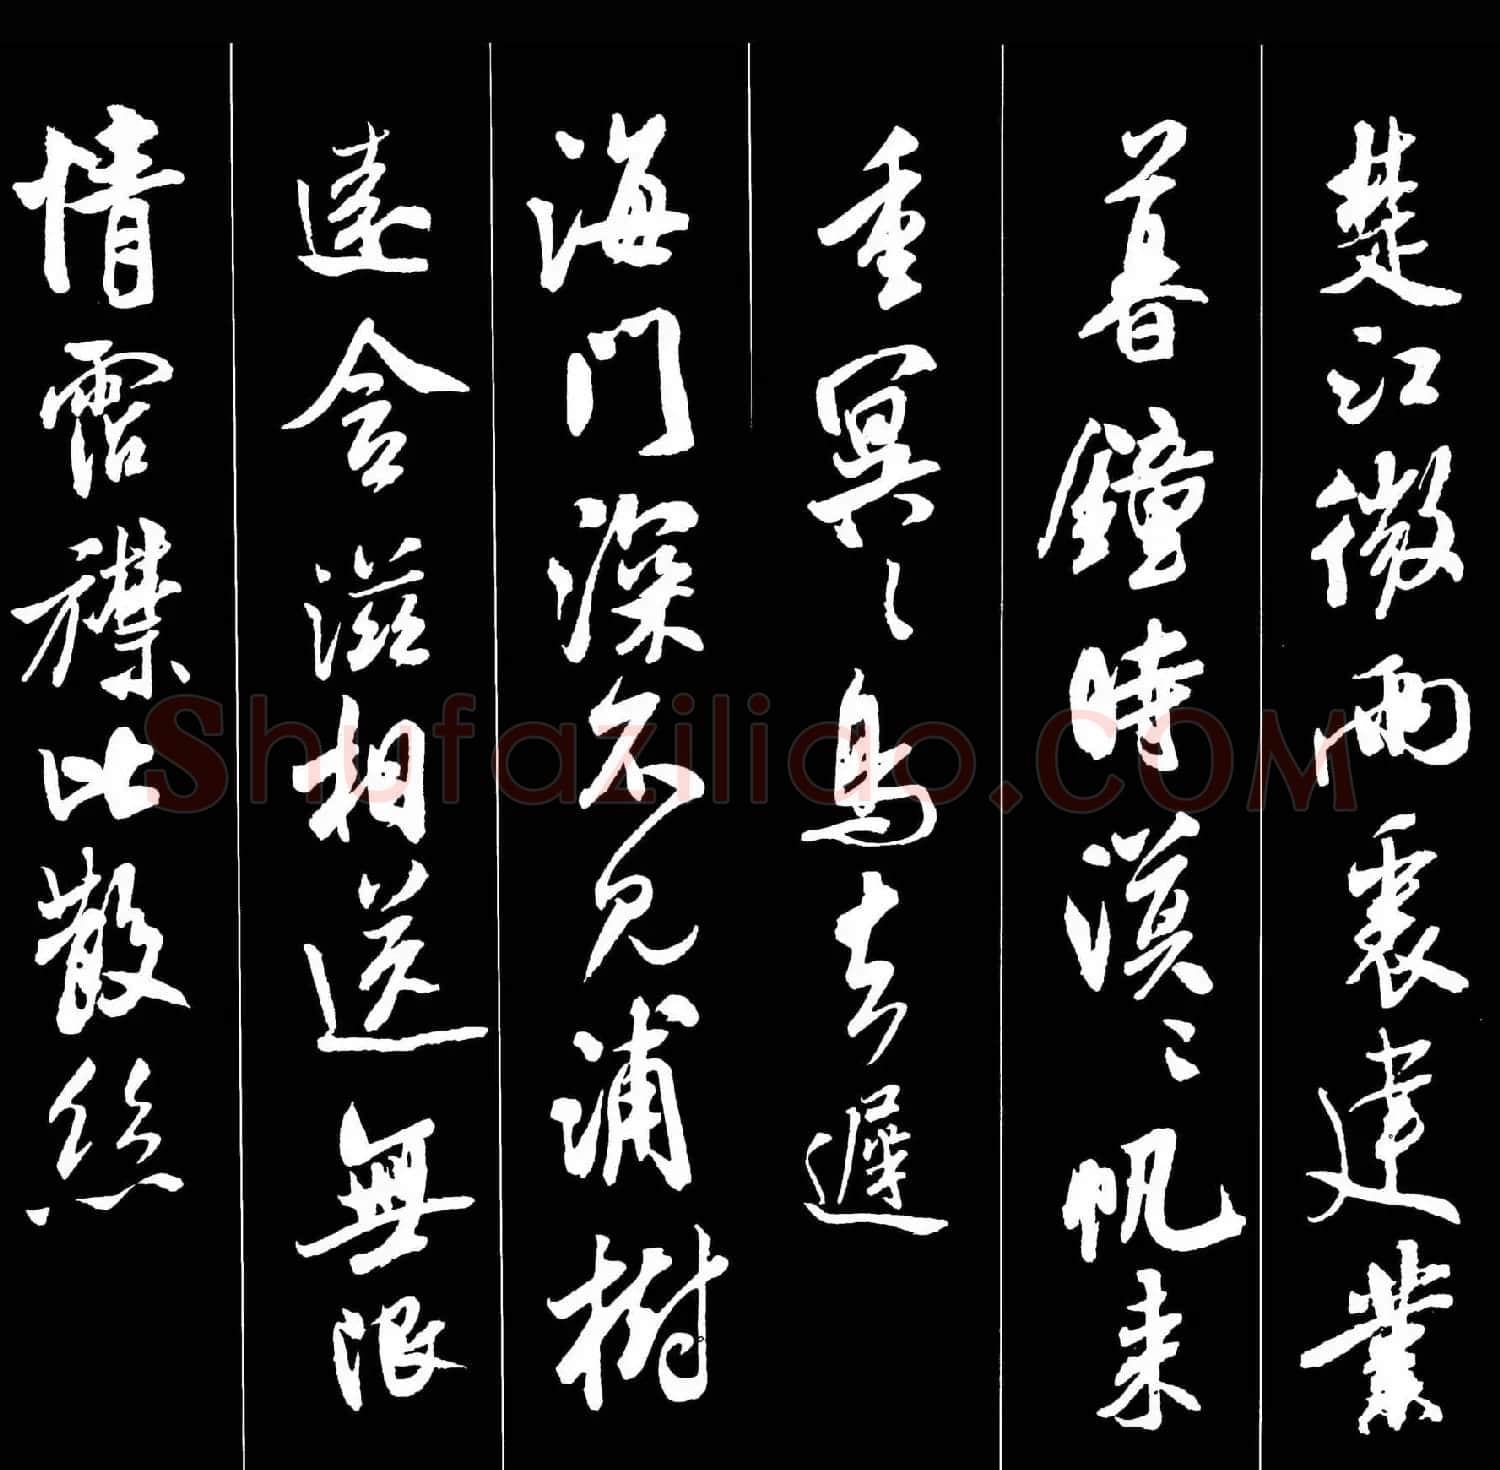 楚江微雨裏建業
暮鐘時漠〻帆来
重冥〻鳥去遲
海門深不見浦樹
遠含滋相送無限
情霑襟比散絲
Shufaziliao.COM